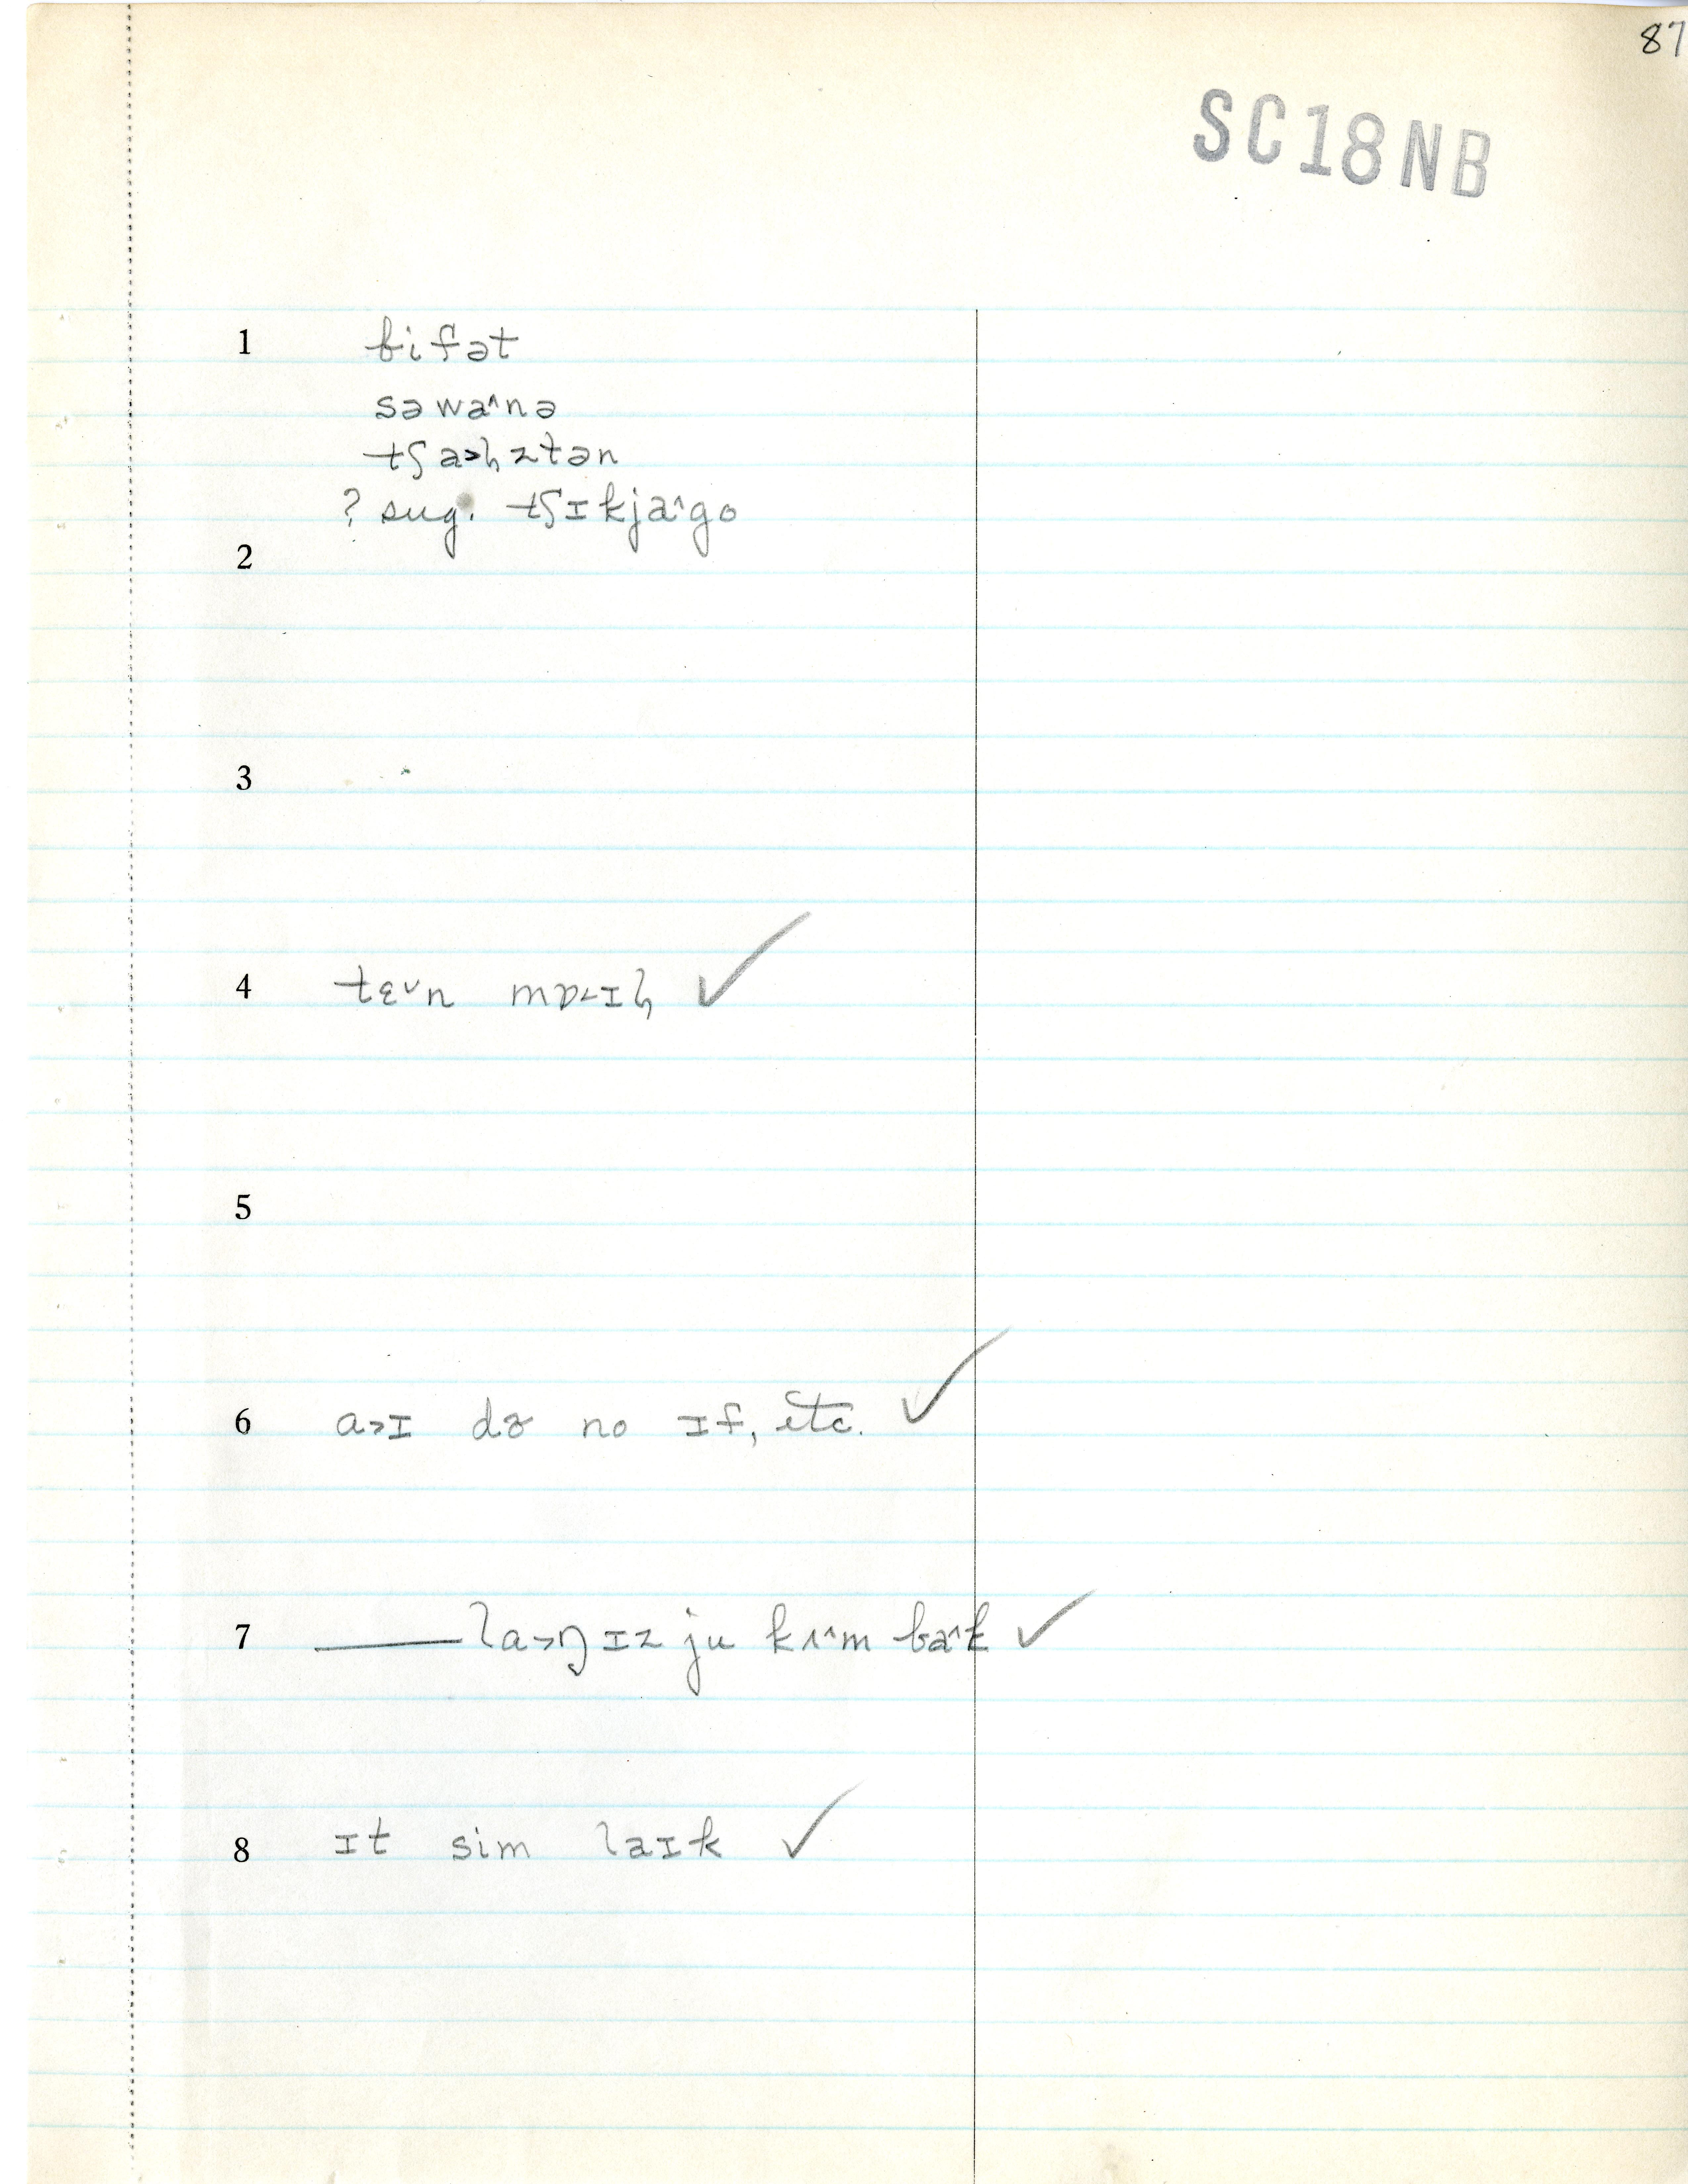 87
SC18NB
1 bifət
səwa^nə
tʃa>ɫztən
? sug. tʃɪkja^go
2
3
4 tɛ˅n mɒ˂ɪɫ ✓
5
6 a>ɪ də no ɪf, etc. ✓
7 ——— la>ŋ ɪz ju kʌ^m ba^k ✓
8 ɪt sim laɪk ✓